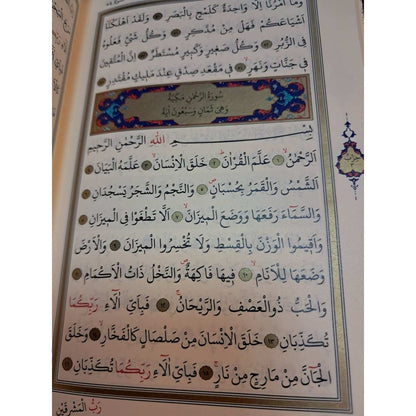 وَمَا أَمْرُنَا إِلَّا وَاحِدَةٌ كَلَمْحٍ بِالْبَصَرِ ﴿٥٠﴾ وَلَقَدْ أَهْلَكْنَا
أَشْيَاعَكُمْ فَهَلْ مِنْ مُدَّكِرٍ ﴿٥١﴾ وَكُلُّ شَيْءٍ فَعَلُوهُ
فِي الزُّبُرِ ﴿٥٢﴾ وَكُلُّ صَغِيرٍ وَكَبِيرٍ مُسْتَطَرٌ ﴿٥٣﴾ إِنَّ الْمُتَّقِينَ
فِي جَنَّاتٍ وَنَهَرٍ ﴿٥٤﴾ فِي مَقْعَدِ صِدْقٍ عِنْدَ مَلِيكٍ مُقْتَدِرٍ ﴿٥٥﴾
سُورَةُ الرَّحْمٰنِ مَكِّيَّةٌ
وَهِيَ ثَمَانٍ وَسَبْعُونَ آيَةً
بِسْمِ اللهِ الرَّحْمٰنِ الرَّحِيمِ
اَلرَّحْمٰنُ ﴿١﴾ عَلَّمَ الْقُرْاٰنَ ﴿٢﴾ خَلَقَ الْاِنْسَانَ ﴿٣﴾ عَلَّمَهُ الْبَيَانَ ﴿٤﴾
اَلشَّمْسُ وَالْقَمَرُ بِحُسْبَانٍ ﴿٥﴾ وَالنَّجْمُ وَالشَّجَرُ يَسْجُدَانِ ﴿٦﴾
وَالسَّمَاءَ رَفَعَهَا وَوَضَعَ الْمِيزَانَ ﴿٧﴾ اَلَّا تَطْغَوْا فِي الْمِيزَانِ ﴿٨﴾
وَاَقِيمُوا الْوَزْنَ بِالْقِسْطِ وَلَا تُخْسِرُوا الْمِيزَانَ ﴿٩﴾ وَالْاَرْضَ
وَضَعَهَا لِلْاَنَامِ ﴿١٠﴾ فِيهَا فَاكِهَةٌ وَالنَّخْلُ ذَاتُ الْاَكْمَامِ ﴿١١﴾
وَالْحَبُّ ذُو الْعَصْفِ وَالرَّيْحَانُ ﴿١٢﴾ فَبِاَيِّ اٰلَاءِ رَبِّكُمَا
تُكَذِّبَانِ ﴿١٣﴾ خَلَقَ الْاِنْسَانَ مِنْ صَلْصَالٍ كَالْفَخَّارِ ﴿١٤﴾ وَخَلَقَ
الْجَانَّ مِنْ مَارِجٍ مِنْ نَارٍ ﴿١٥﴾ فَبِاَيِّ اٰلَاءِ رَبِّكُمَا تُكَذِّبَانِ ﴿١٦﴾
رَبُّ الْمَشْرِقَيْنِ